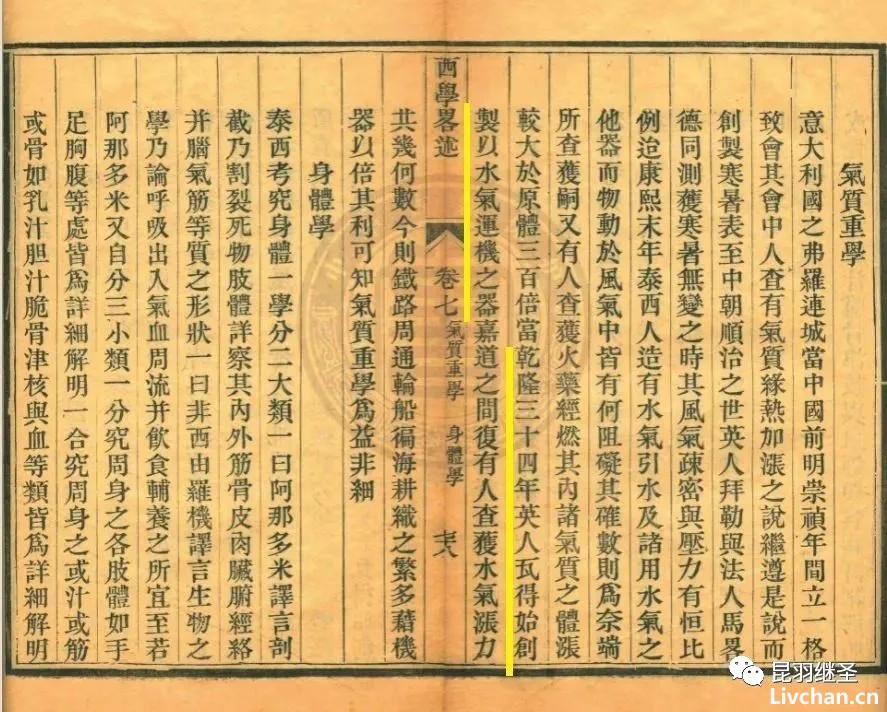 氣質重學
意大利國之弗羅連城當中國前明崇禎年間立一格
致會其會中人查有氣質緣熱加漲之說繼遵是說而
創製寒暑表至中朝順治之世英人拜勒與法人馬畧
德同測獲寒暑無變之時其風氣疎密與壓力有恒比
例迨康熙末年泰西人造有水氣引水及諸用水氣之
他器而物動於風氣中皆有何阻礙其確數則爲奈端
所查獲嗣又有人查獲火藥經燃其內諸氣質之體漲
較大於原體三百倍當乾隆三十四年英人瓦得始創
製以水氣運機之器嘉道之間復有人查獲水氣漲力
西學畧述
卷七
氣質重學
身體學
其幾何數今則鐵路周通輪船徧海耕織之繁多藉機
器以倍其利可知氣質重學爲益非細
身體學
泰西考究身體一學分二大類一曰阿那多米譯言剖
截乃割裂死物肢體詳察其內外筋骨皮肉臟腑經絡
并腦氣筋等質之形狀一曰非西由羅機譯言生物之
學乃論呼吸出入氣血周流并飲食輔養之所宜至若
阿那多米又自分三小類一分究周身之各肢體如手
足胸腹等處皆爲詳細解明一合究周身之或汁或筋
或骨如乳汁胆汁脆骨津核與血等類皆爲詳細解明
昆羽继圣
Livchan.cn